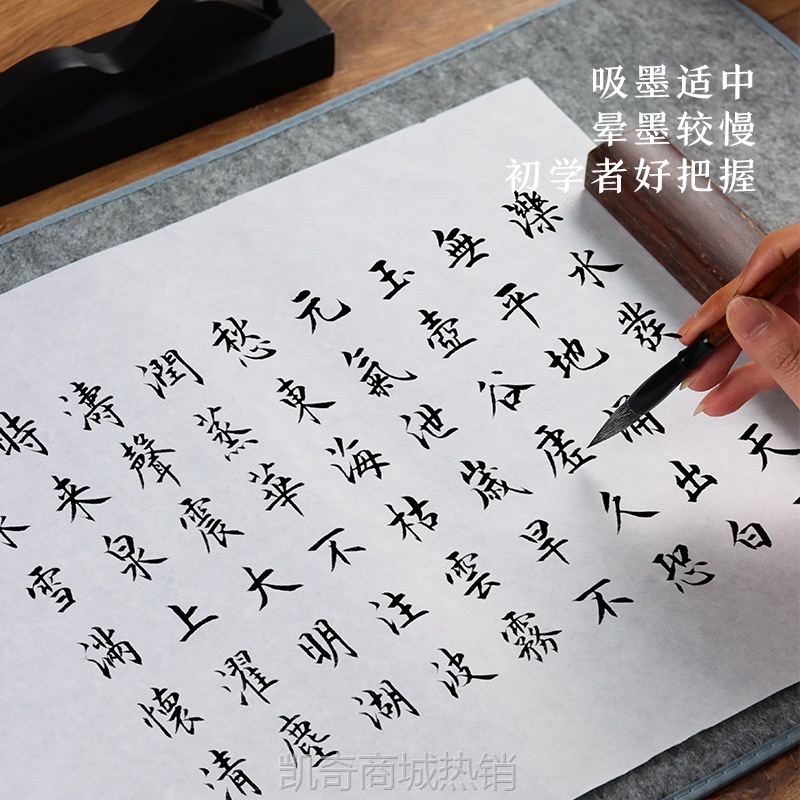 吸墨适中
晕墨较慢
初学者好把握
濼水發天
無平地湧出白
玉壺谷虛久恐
元氣泄歲旱不
愁東海枯雲霧
潤蒸華不注波
濤聲震大明湖
時来泉上濯塵
雪滿懷清
凯奇商城热销